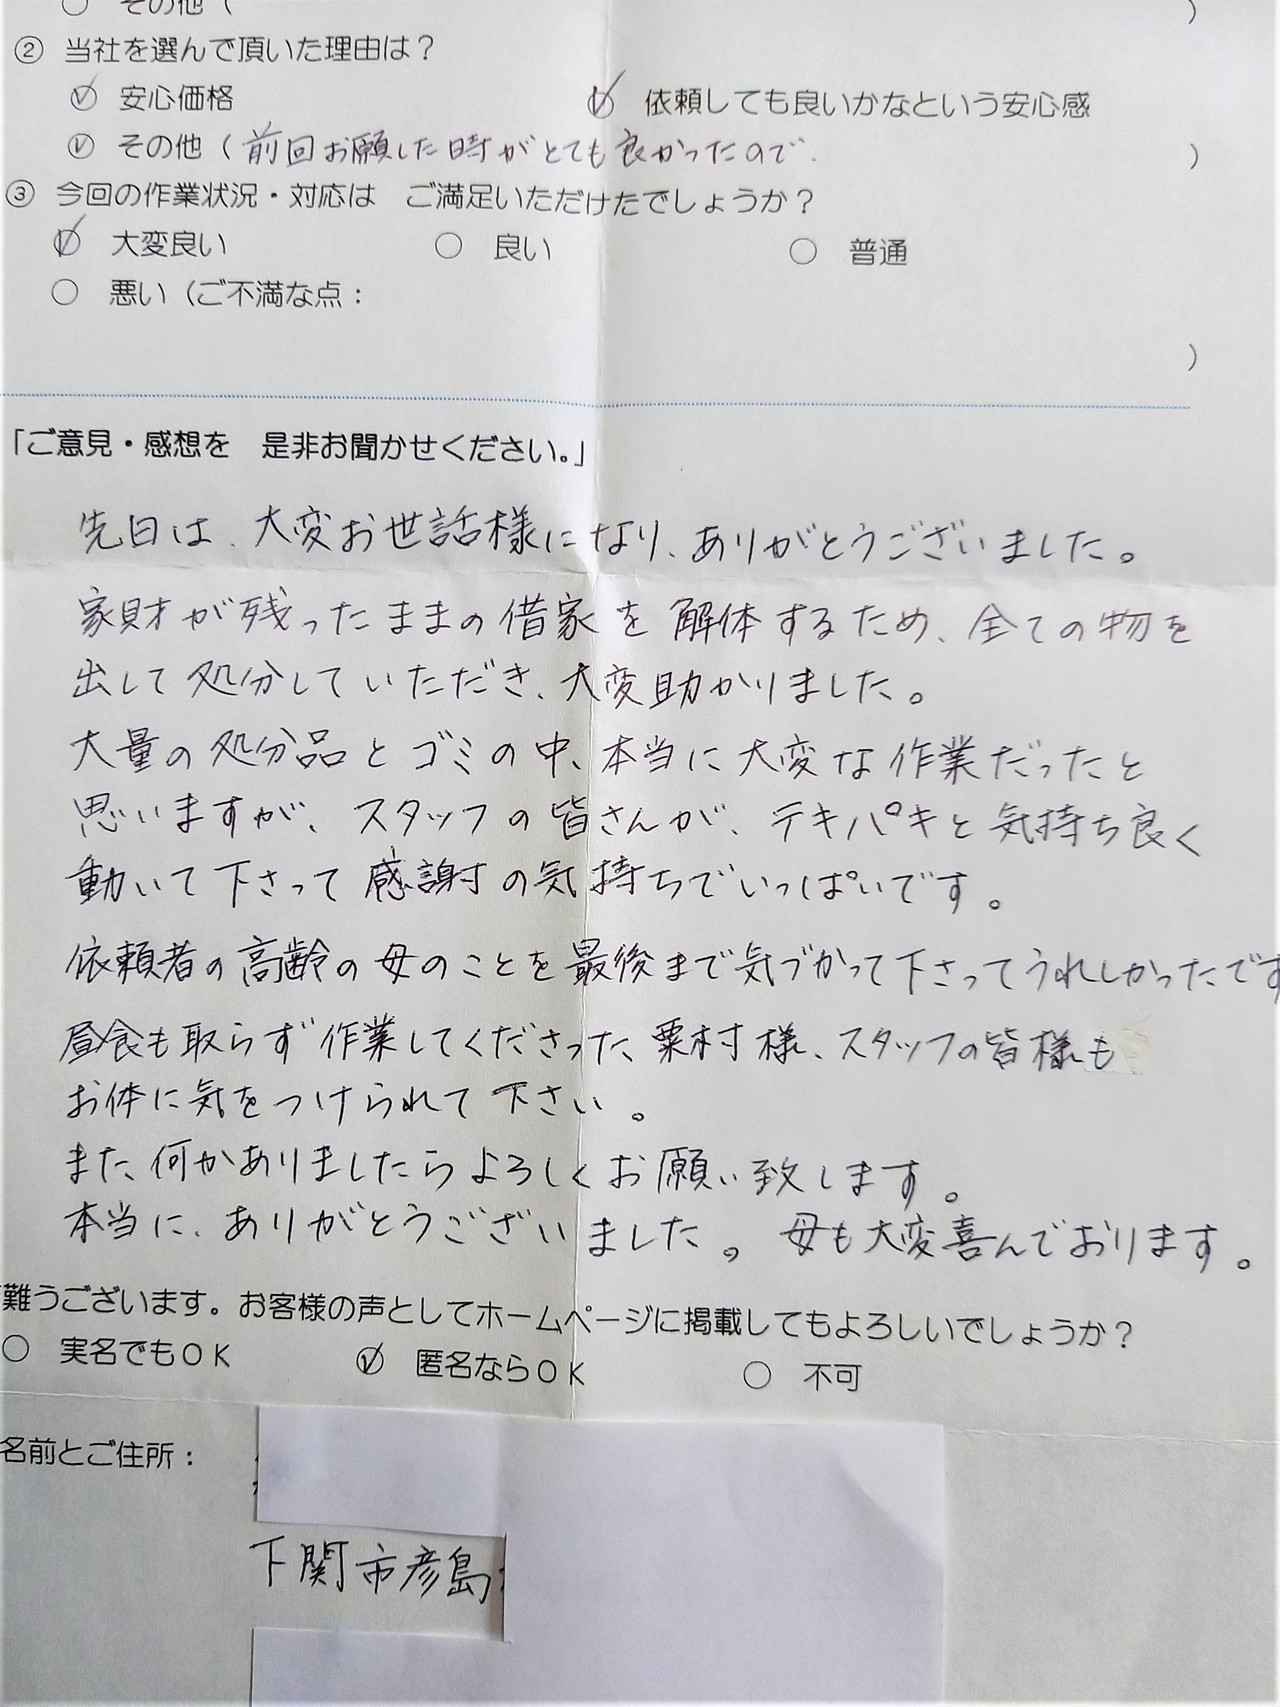 ○ その他（ ）
② 当社を選んで頂いた理由は？
✓ 安心価格 ✓ 依頼しても良いかなという安心感
✓ その他（前回お願いした時がとても良かったので. ）
③ 今回の作業状況・対応は ご満足いただけたでしょうか？
✓ 大変良い ○ 良い ○ 普通
○ 悪い（ご不満な点：
）
「ご意見・感想を 是非お聞かせください。」
先日は、大変お世話様になり、ありがとうございました。
家財が残ったままの借家を解体するため、全ての物を
出して処分していただき、大変助かりました。
大量の処分品とゴミの中、本当に大変な作業だったと
思いますが、スタッフの皆さんが、テキパキと気持ち良く
動いて下さって感謝の気持ちでいっぱいです。
依頼者の高齢の母のことを最後まで気づかって下さってうれしかったです
昼食も取らず作業してくださった、粟村様、スタッフの皆様も
お体に気をつけられて下さい。
また、何かありましたらよろしくお願い致します。
本当に、ありがとうございました。母も大変喜んでおります。
難うございます。お客様の声としてホームページに掲載してもよろしいでしょうか？
○ 実名でもＯＫ ✓ 匿名ならＯＫ ○ 不可
名前とご住所：
下関市彦島